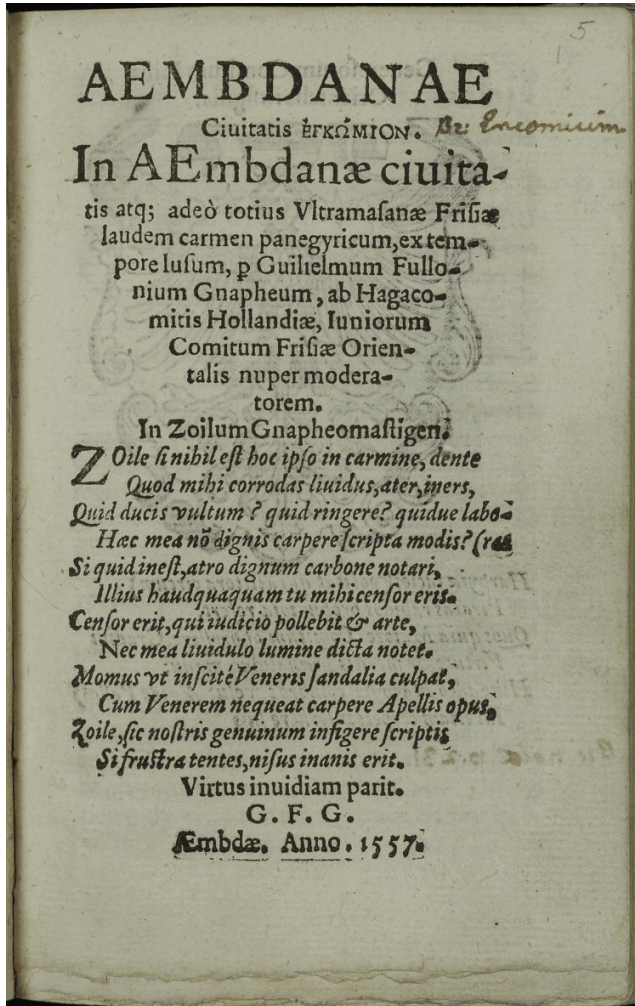 5
AEMBDANAE
Ciuitatis ἐγκώμιον. Encomium.
In AEmbdanæ ciuita-
tis atq; adeò totius Vltramasanæ Frisiæ
laudem carmen panegyricum, ex tem-
pore lusum, ꝑ Guilielmum Fullo-
nium Gnapheum, ab Hagaco-
mitis Hollandiæ, Iuniorum
Comitum Frisiæ Orien-
talis nuper modera-
torem.
In Zoilum Gnapheomastigen.
ZOile si nihil est hoc ipso in carmine, dente
Quod mihi corrodas liuidus, ater, iners,
Quid ducis vultum? quid ringere? quidue labo-
Hæc mea nō dignis carpere scripta modis? (ras
Si quid inest, atro dignum carbone notari,
Illius haudquaquam tu mihi censor eris.
Censor erit, qui iudicio pollebit & arte,
Nec mea liuidulo lumine dicta notet.
Momus vt inscitè Veneris sandalia culpat,
Cum Venerem nequeat carpere Apellis opus,
Zoile, sic nostris genuinum infigere scriptis
Si frustra tentes, nisus inanis erit.
Virtus inuidiam parit.
G. F. G.
Æmbdæ. Anno. 1557.